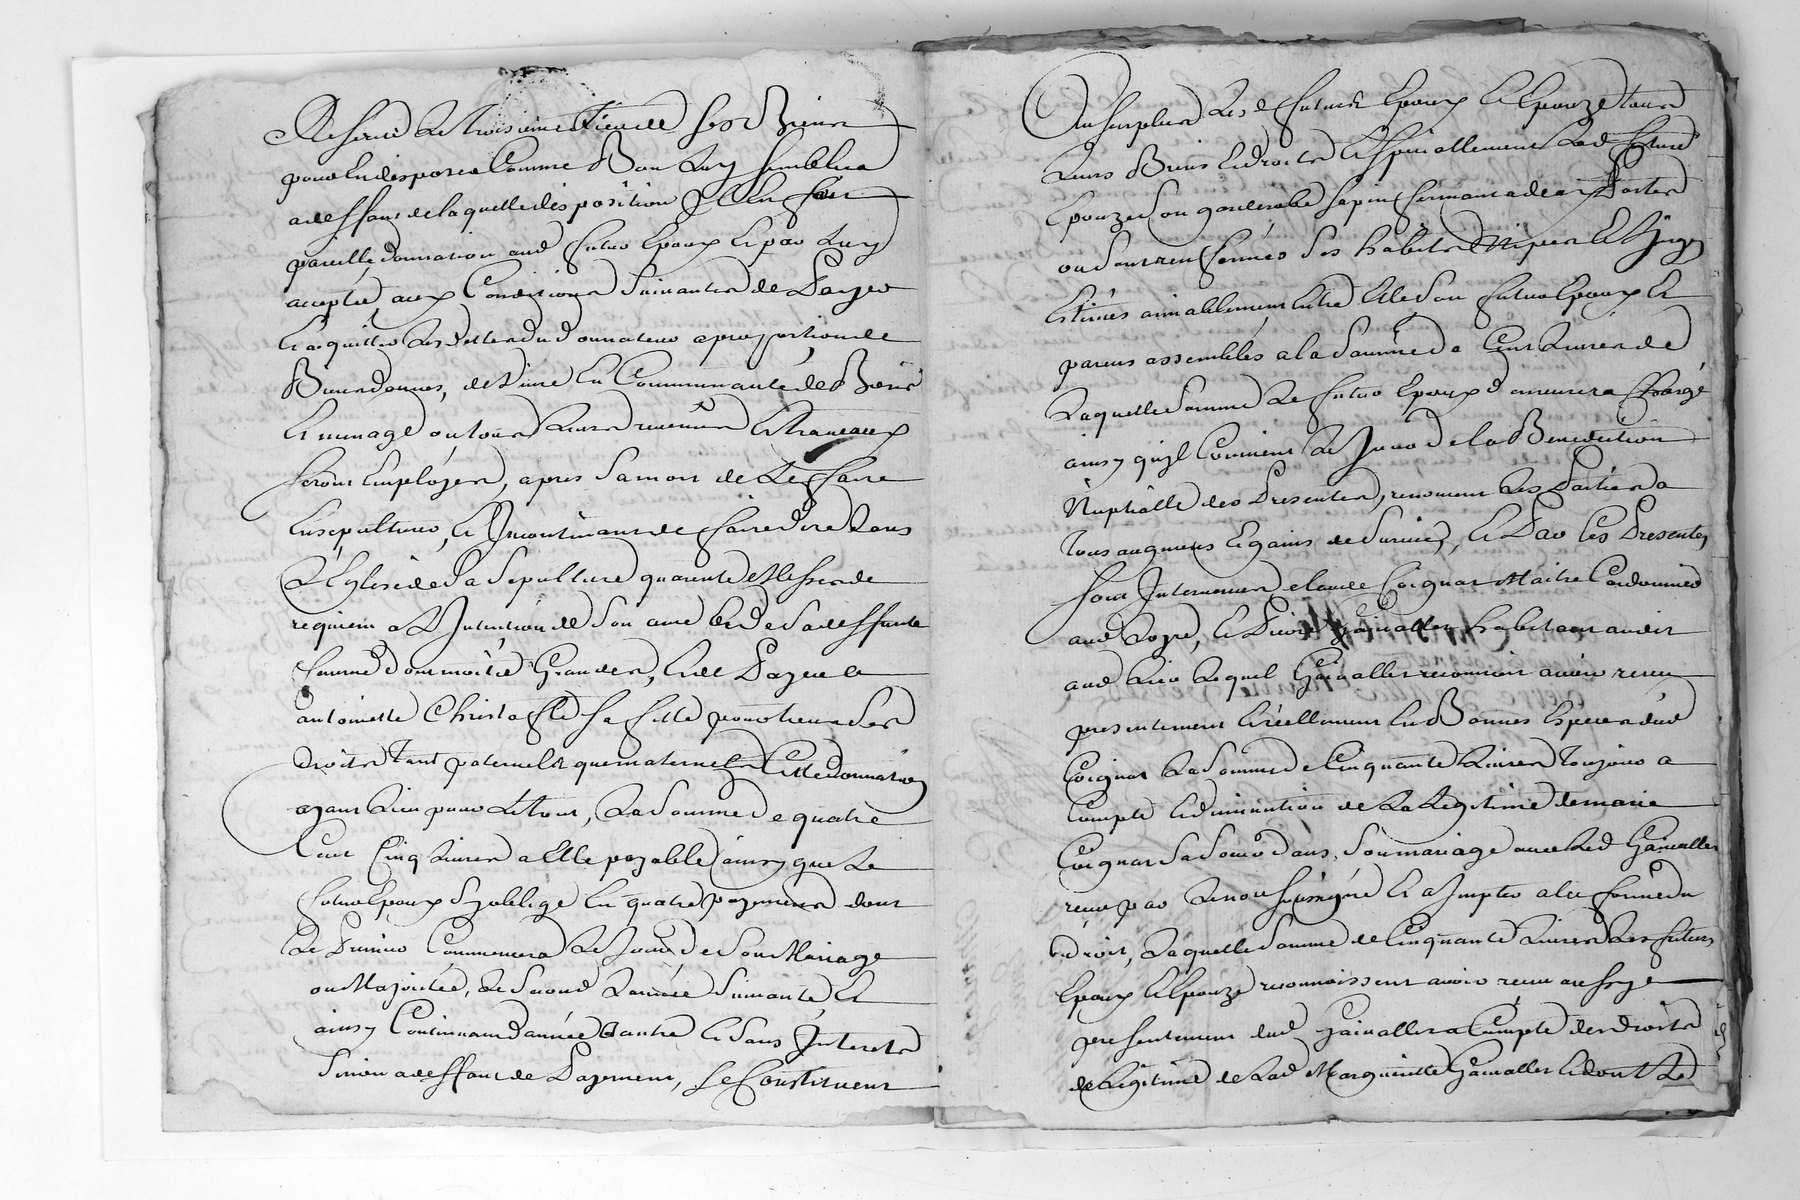 Reservé le troisieme tiers de ses Biens
pour en disposer Comme Bon luy semblera
a deffaut de laquelle disposition Il en fait
pareille donnation aud futur Epoux et par luy
acceptée, aux Conditions Suivantes de Payer
et acquitter les dettes dud donnateur a proportion de
Biens donnés, de vivre En Communauté de Biens
et menage ou tous leurs revenus et travaux
seront Employés, apres sa mort de le faire
Ensepulturer, et Incontinant de faire dire dans
L'Eglise de sa sepulture quarente Messes de
requiem a L'Intention de son ame et de sa deffunte
femme dont moitié Grandes, et de Payer a
antoinette Christofle sa fille pour tous ses
droits tant paternels que maternels Cette donnation
ayant lieu pour le tout, la somme de quatre
Cent Cinq livres a Elle payable ainsy que le
futur Epoux s'y oblige En quatre payements dont
le Premier Commencera le Jour de son Mariage
ou Majorité, le second l'année suivante et
ainsy Continuant d'année a autre et sans Interets
sinon a deffaut de Payement, se Constituent
Au surplus les d futurs Epoux et Epouze tous
leurs Biens et droits et specialement lad future
Epouze son garderobe sapin fermant a deux Portes
ou sont renfermés ses habits Nipes et linges
Estimés aimablement entre Elle son futur Epoux et
parens assemblés a la somme de Cent livres de
laquelle somme le futur Epoux demeurera Chargé
ainsy qu'il Convient le Jour de la Benediction
Nuptialle des Presentes, renoncent les Parties a
tous augmens et gains de survie, et Par les Presentes
sont Intervenus claude Coignat Maitre Cordonnier
aud , et Pierre Gainallet habitant audit
aud lieu lequel Gainallet reconnoit avoir receu
presentement et réellement En Bonnes Especes dud
Coignat la somme de Cinquante livres toujours a
Compte et diminution de la legitime de marie
Coignat sa soeur dans son mariage avec led Gainallet
receu par le no[re] soussigné et a Imputer a la forme du
droit, laquelle somme de Cinquante livres les futurs
Epoux et Epouze reconnoissent avoir receu
presentement dud Gainallet a Compte des droits
de legitime de lad Marguerite Gainallet et dont led